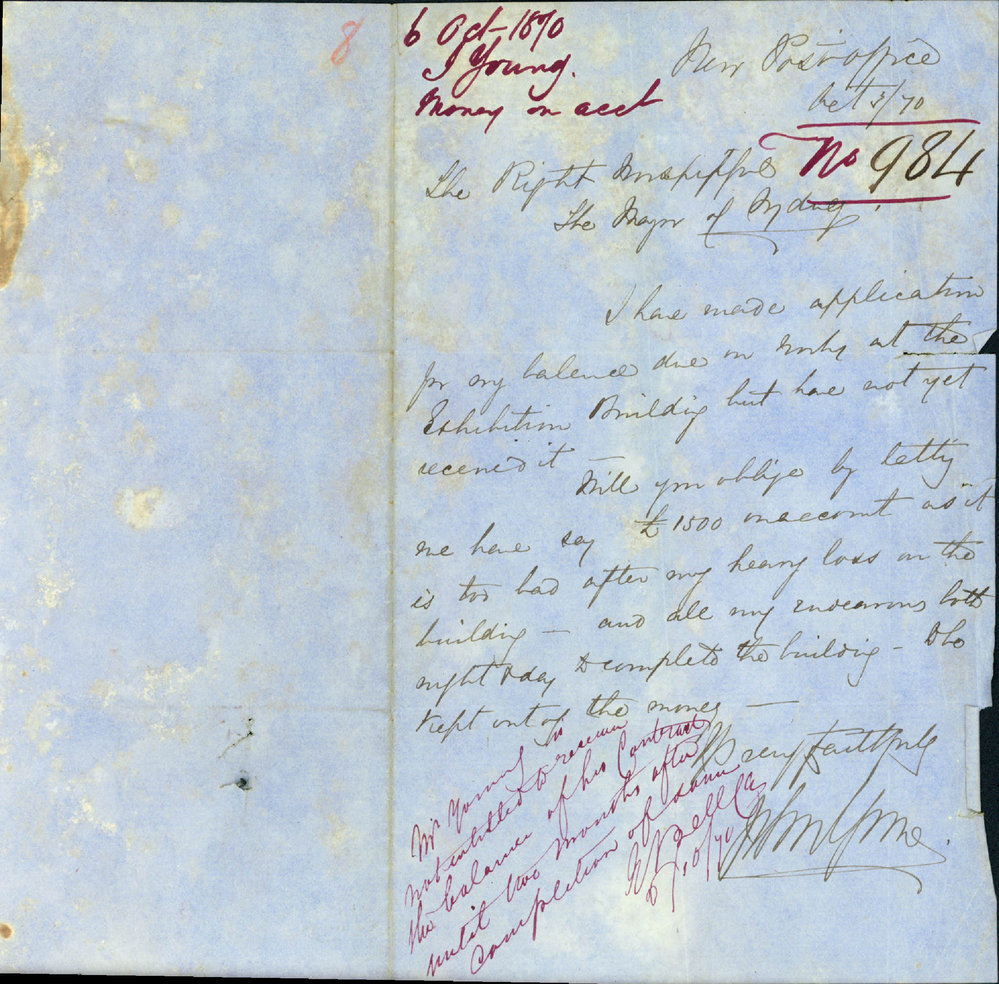 8
6 Oct - 1870
J Young.
Money on acct
New Post office
Oct 3/70
No 984
The Right Worshipful
The Mayor of Sydney.
I have made application
for my balance due on works at the
Exhibition Building but have not yet
received it —
Will you oblige by letting
me have say £1500 on account as it
is too bad after my heavy loss on the
building — and all my endeavours both
night & day to complete the building — to be
kept out of the money —
Yours very faithfully
John Young
Mr Young is
not entitled to receive
the balance of his Contract
until two months after
completion of same
E Bell CE
6/10/70